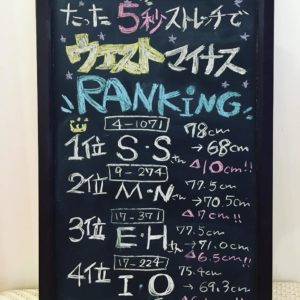 たった5秒ストレッチで
ウエストマイナス
RANKING
4-1071
1位 S・Sさん 78cm
→68cm
△10cm!!
9-274
2位 M・Nさん 77.5cm
→70.5cm
△7cm!!
17-371
3位 E・Hさん 77.5cm
→71.0cm
△6.5cm!!
17-224
4位 I・O 75.4cm
→69.3cm